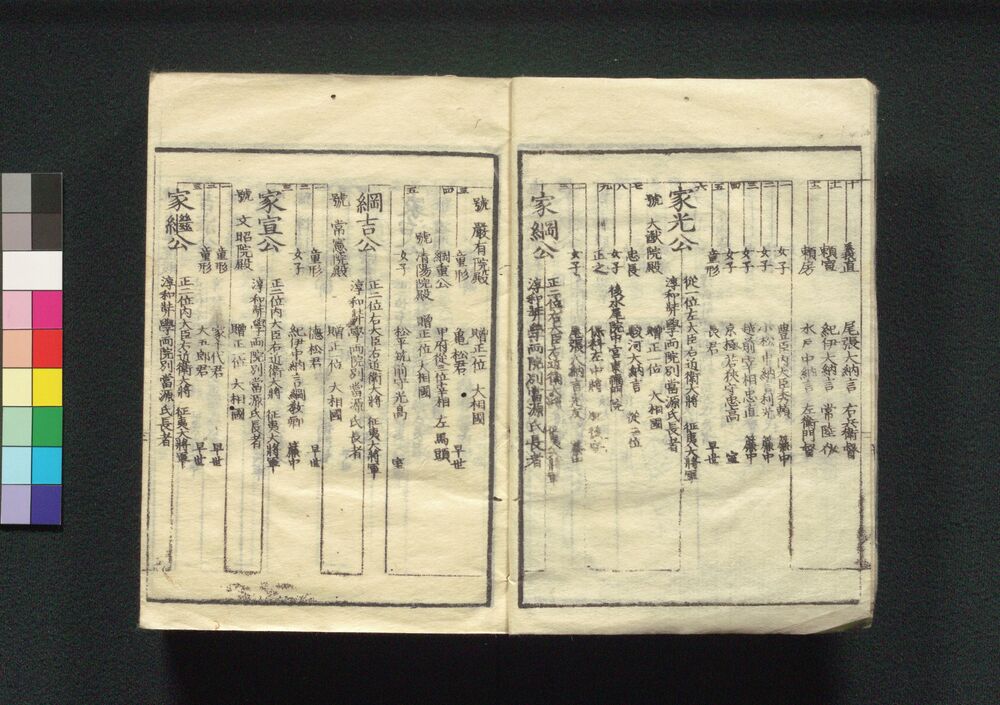 十
義直 尾張大納言 右兵衛督
十一
頼宣 紀伊大納言 常陸介
十二
頼房 水戸中納言 左衛門督
一
女子 豊臣内大臣秀頼 簾中
二
女子 小松中納言利光 簾中
三
女子 越前宰相忠直 簾中
四
女子 京極若狭守忠高 室
五
童形 長君 早世
六
家光公 從一位左大臣右近衛大將 征夷大將軍
淳和弉學両院別當源氏長者
號 大猷院殿 贈正一位 大相國
七
忠長 駿河大納言 從二位
八
後水尾院中宮東福門院
九
正之 保科左中將
一
女子 尾張大納言光友 簾中
二
家綱公 正二位右大臣右近衛大將 征夷大將軍
淳和弉學両院別當源氏長者
號 嚴有院殿 贈正一位 大相國
三
童形 亀松君 早世
四
綱重公 甲府從三位宰相 左馬頭
號 清陽院殿 贈正一位 大相國
五
女子 松平筑前守光高 室
綱吉公 正二位右大臣右近衛大將 征夷大將軍
淳和弉學両院別當源氏長者
號 常憲院殿 贈正一位 大相國
一
童形 德松君 早世
二
女子 紀伊中納言綱教卿 簾中
三
家宣公 正二位内大臣右近衛大將 征夷大將軍
淳和弉學両院別當源氏長者
號 文昭院殿 贈正一位 大相國
一
童形 家千代君 早世
二
童形 大五郎君 早世
三
家繼公 正二位内大臣右近衛大將 征夷大將軍
淳和弉學両院別當源氏長者